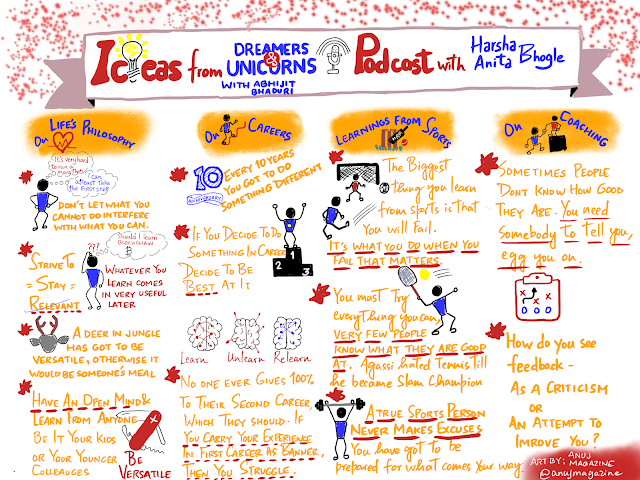 Ideas from DREAMERS & UNICORNS Podcast with Harsha Anita Bhogle
WITH ABHIJIT BHADURI
On LIFE'S PHILOSOPHY
"It's very hard to run a marathon"
I can atleast take the first step
DON'T LET WHAT YOU
CANNOT DO INTERFERE
WITH WHAT YOU CAN.
Should I learn
BLOCKCHAIN
???
STRIVE TO
= STAY =
RELEVANT
WHATEVER YOU
LEARN COMES
IN VERY USEFUL
LATER
A DEER IN JUNGLE
HAS GOT TO BE
VERSATILE; OTHERWISE IT
WOULD BE SOMEONE'S MEAL
HAVE AN OPEN MIND &
LEARN FROM ANYONE-
BE IT YOUR KIDS
OR YOUR YOUNGER
COLLEAUGES
BE
VERSATILE
On CAREERS
10
ANNIVERSARY
EVERY 10 YEARS
YOU GOT TO DO
SOMETHING DIFFERENT
IF YOU DECIDE TO DO
SOMETHING IN CAREER
DECIDE TO BE
BEST AT IT
2 1 3
Learn Unlearn Relearn
NO ONE EVER GIVES 100%
TO THEIR SECOND CAREER
WHICH THEY SHOULD. IF
YOU CARRY YOUR EXPERIENCE
IN FIRST CAREER AS BANNER,
THEN YOU STRUGGLE.
LEARNINGS FROM SPORTS
The Biggest
thing you learn
from sports is that
You will Fail.
IT'S WHAT YOU DO WHEN YOU
FAIL THAT MATTERS.
You must Try
everything you can,
VERY FEW PEOPLE
KNOW WHAT THEY ARE GOOD
AT. Agassi hated Tennis till
he became Slam Champion
A TRUE SPORTS PERSON
NEVER MAKES EXCUSES
You have got to be
prepared for what comes your way.
On COACHING
SOMETIMES PEOPLE
DONT KNOW HOW GOOD
THEY ARE. You need
Somebody to Tell you,
egg you on.
How do you see
feedback -
AS A CRITICISM
OR
AN ATTEMPT TO
IMPROVE YOU?
ART BY: ANUJ
MAGAZINE
@anujmagazine